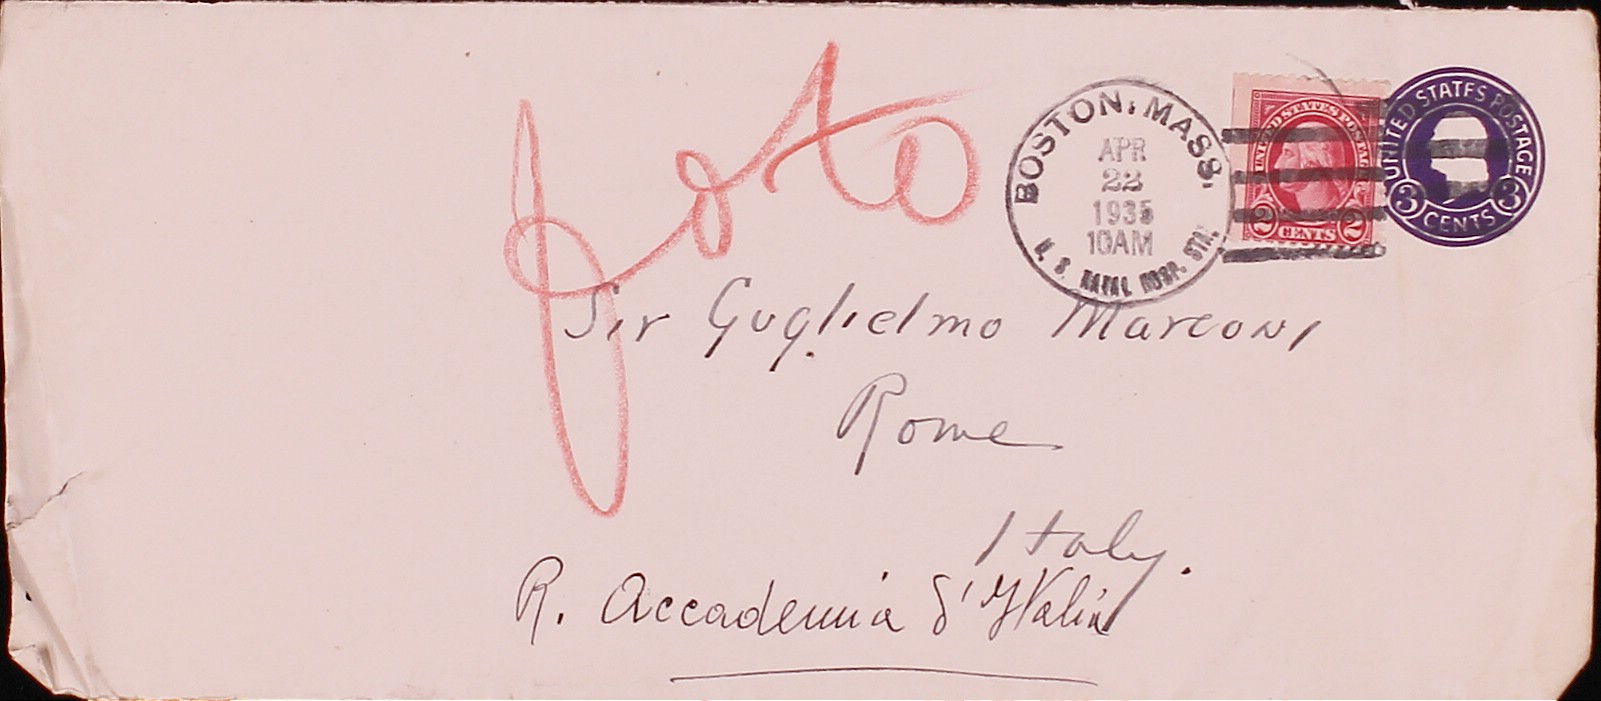 foto
BOSTON, MASS.
APR
22
1935
10AM
U. S. NAVAL HOSP. STA.
UNITED STATES POSTAGE
2 CENTS 2
UNITED STATES POSTAGE
3 CENTS 3
Sir Guglielmo Marconi
Rome
Italy.
R. Accademia d'Italia